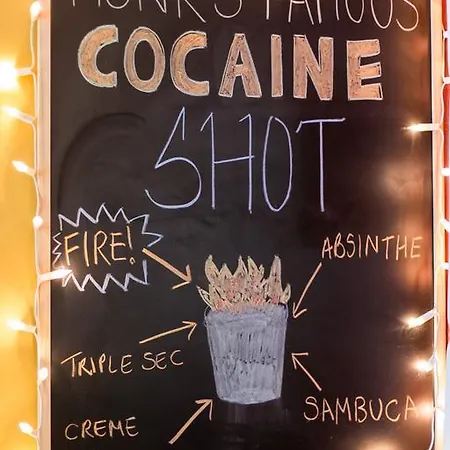 MONK'S FAMOUS
COCAINE
SHOT
FIRE!
ABSINTHE
TRIPLE SEC
SAMBUCA
CREME